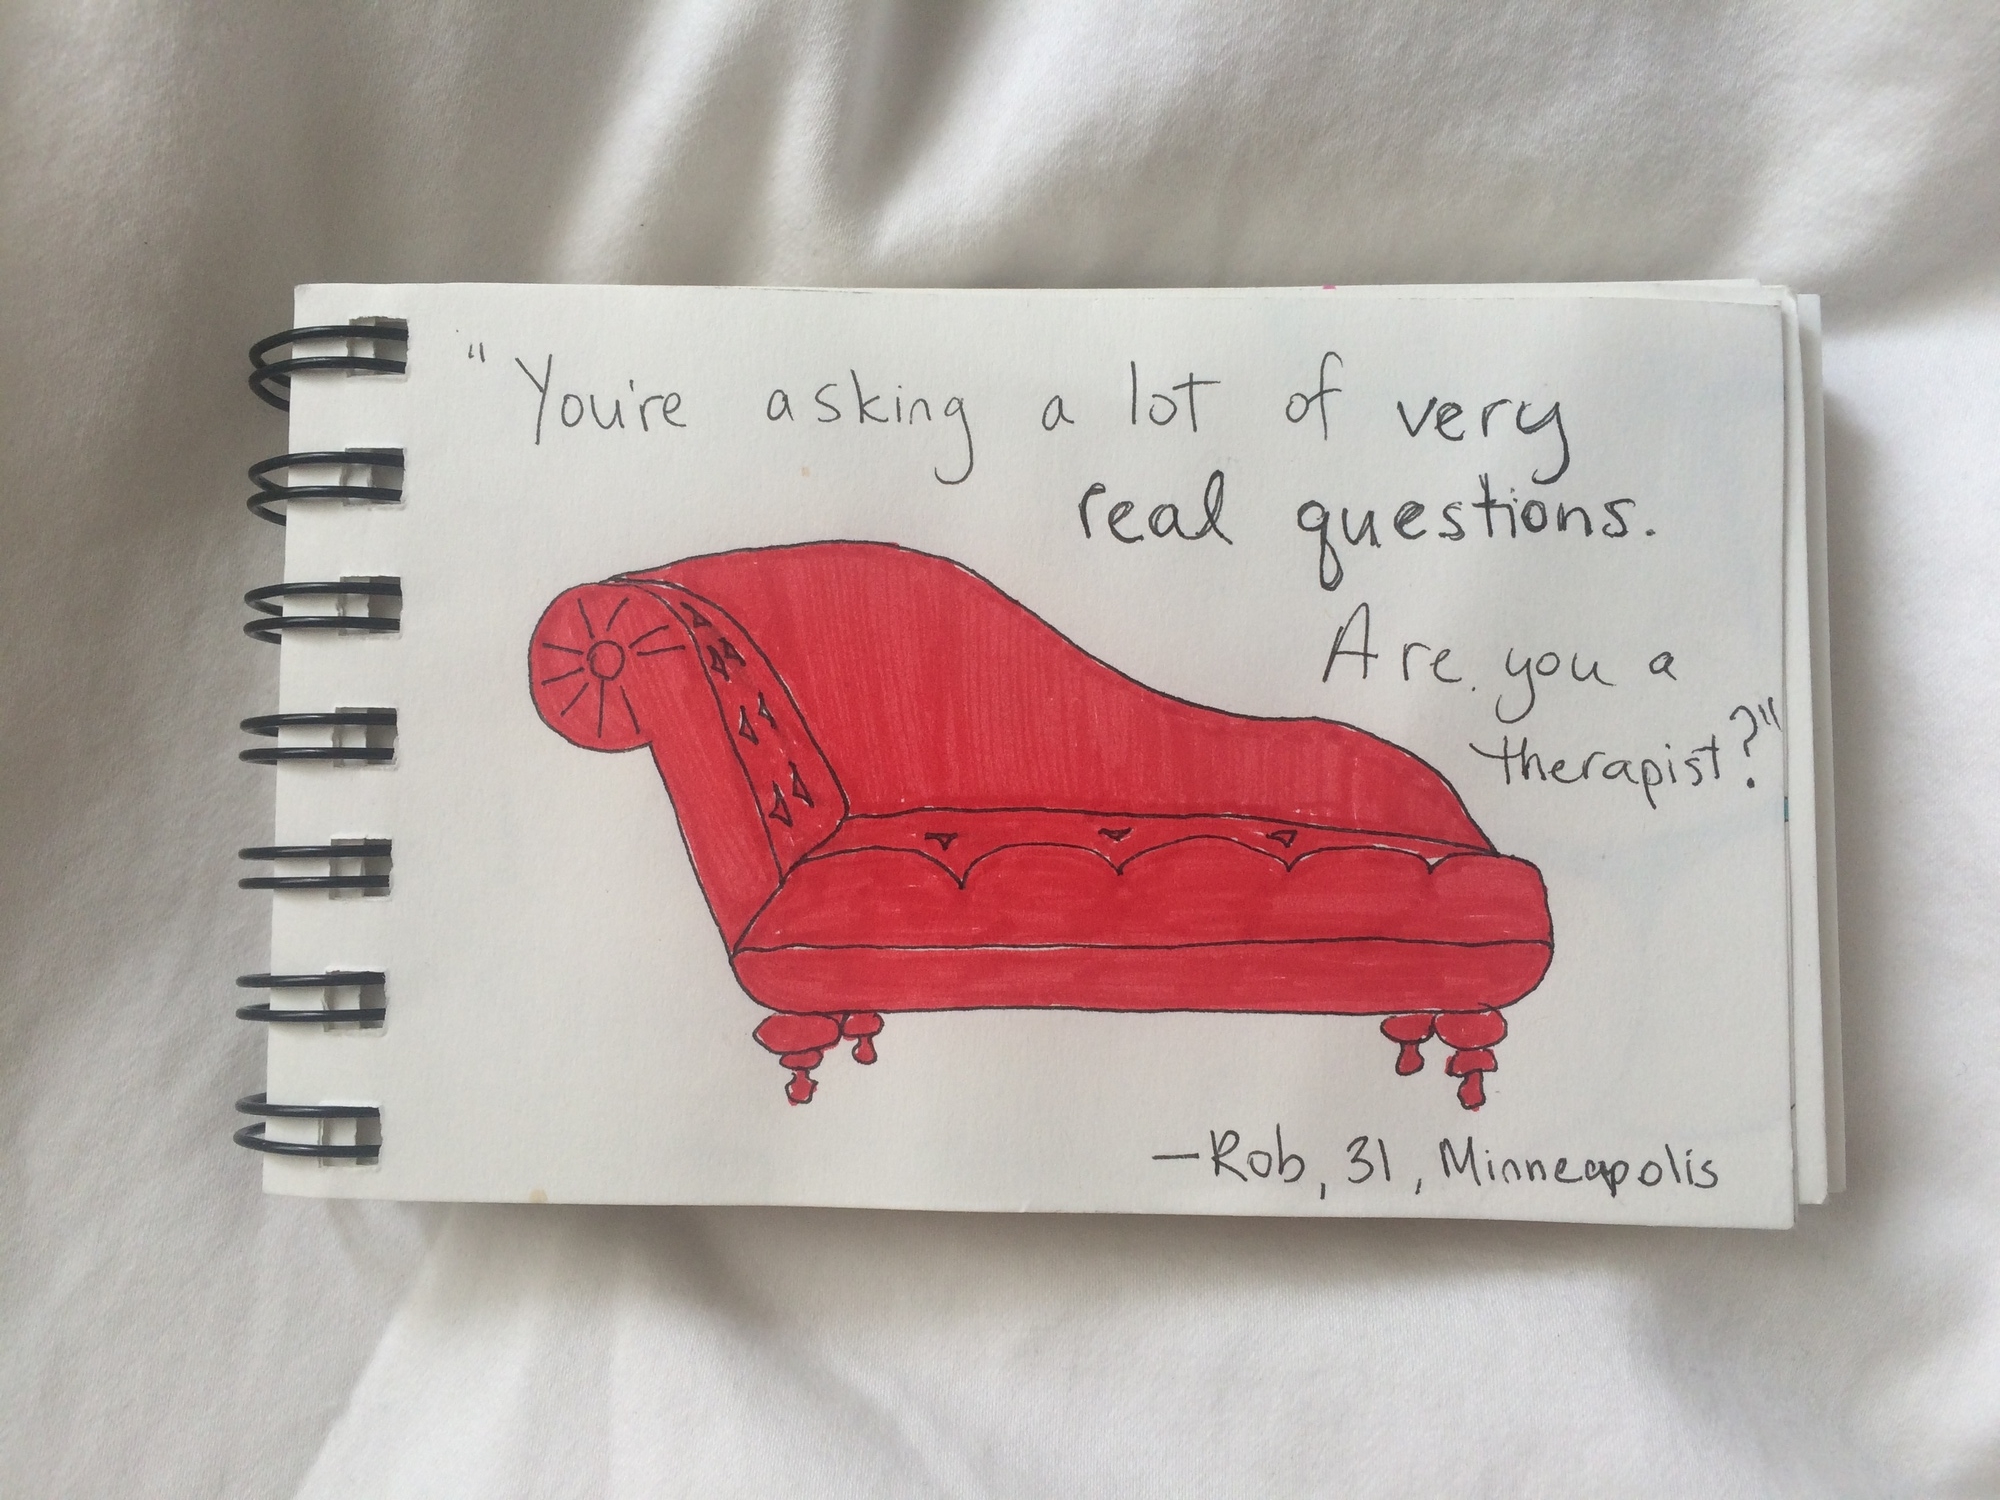 "You're asking a lot of very
real questions.
Are you a
therapist?"
—Rob, 31, Minneapolis